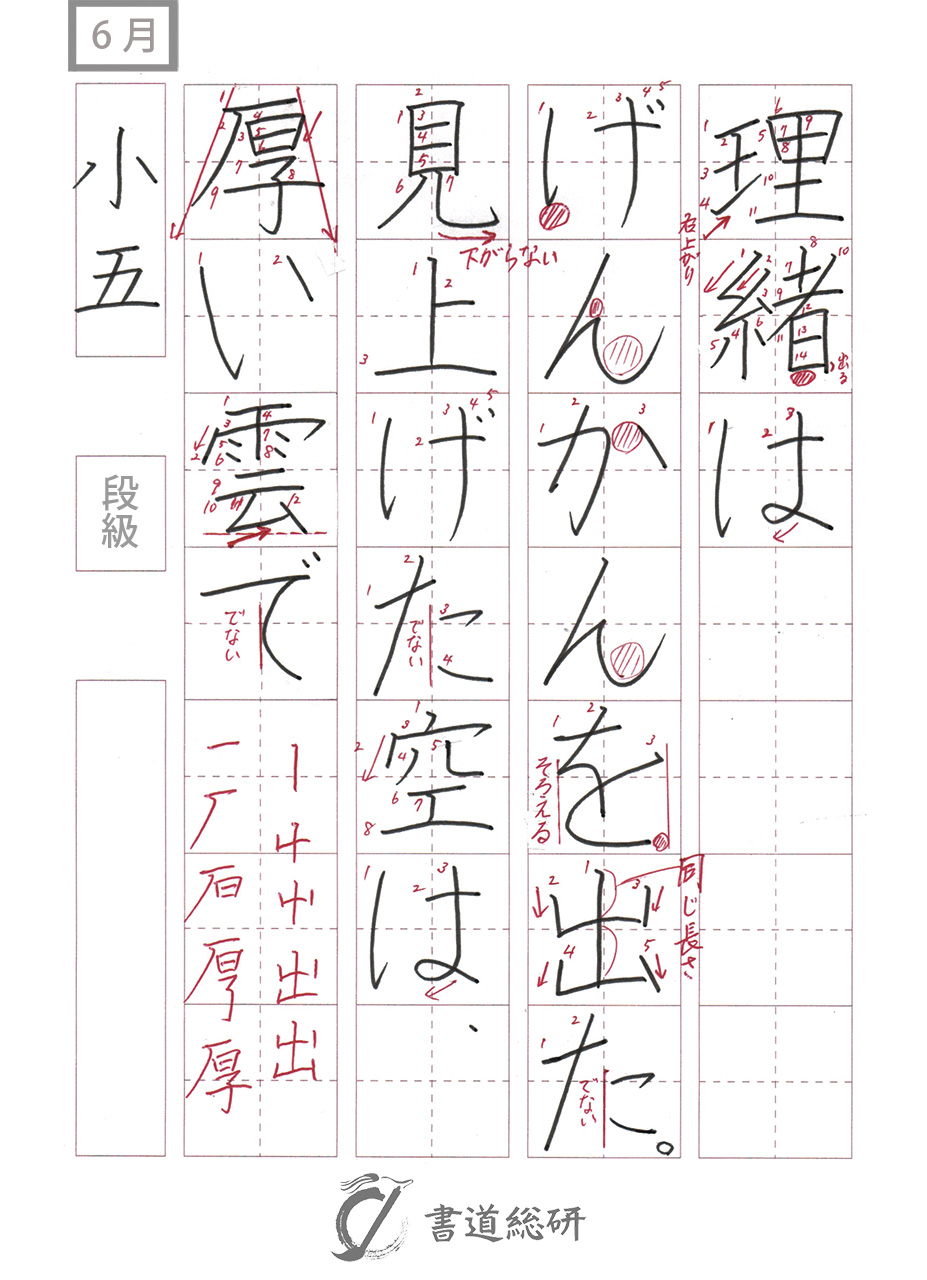 6月
理緒は
右上がり
出る
げんかんを出た。
そろえる
同じ長さ
でない
見上げた空は、
下がらない
でない
厚い雲で
でない
一厂戸厚厚
出出
小五
段級
書道総研